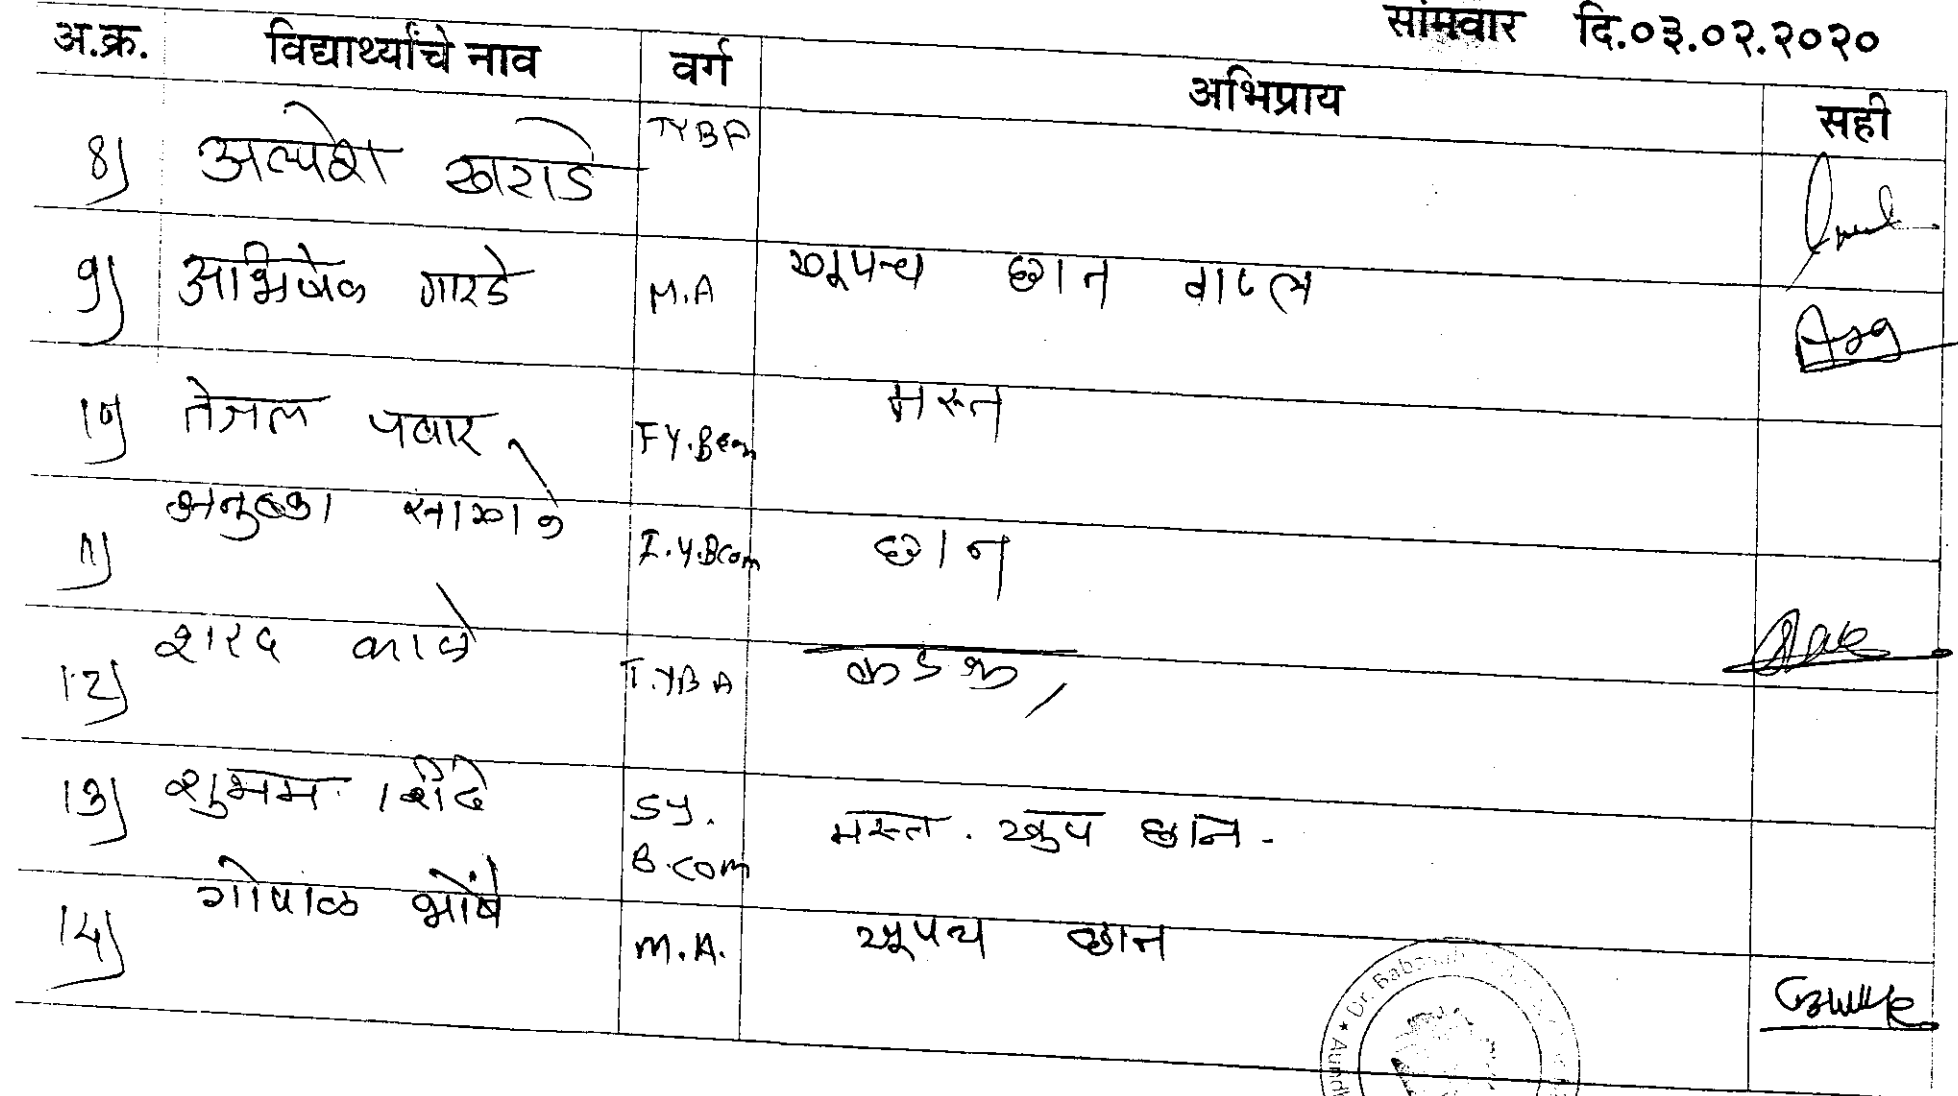 सोमवार दि.०३.०२.२०२०
अ.क्र. विद्यार्थ्यांचे नाव वर्ग अभिप्राय सही
8) अल्पेश खराडे TYBA
9) अभिषेक गारडे M.A खूपच छान वाटल
10) तेजल पवार F.Y.Bcom मस्त
11) अनुष्का साळवे F.Y.Bcom छान
12) शरद काळे T.YBA कडक
13) शुभम शिंदे S.Y. B.com मस्त. खुप छान.
14) गोपाळ भोंबे M.A. खूपच छान
Dr. Baba
Aundh